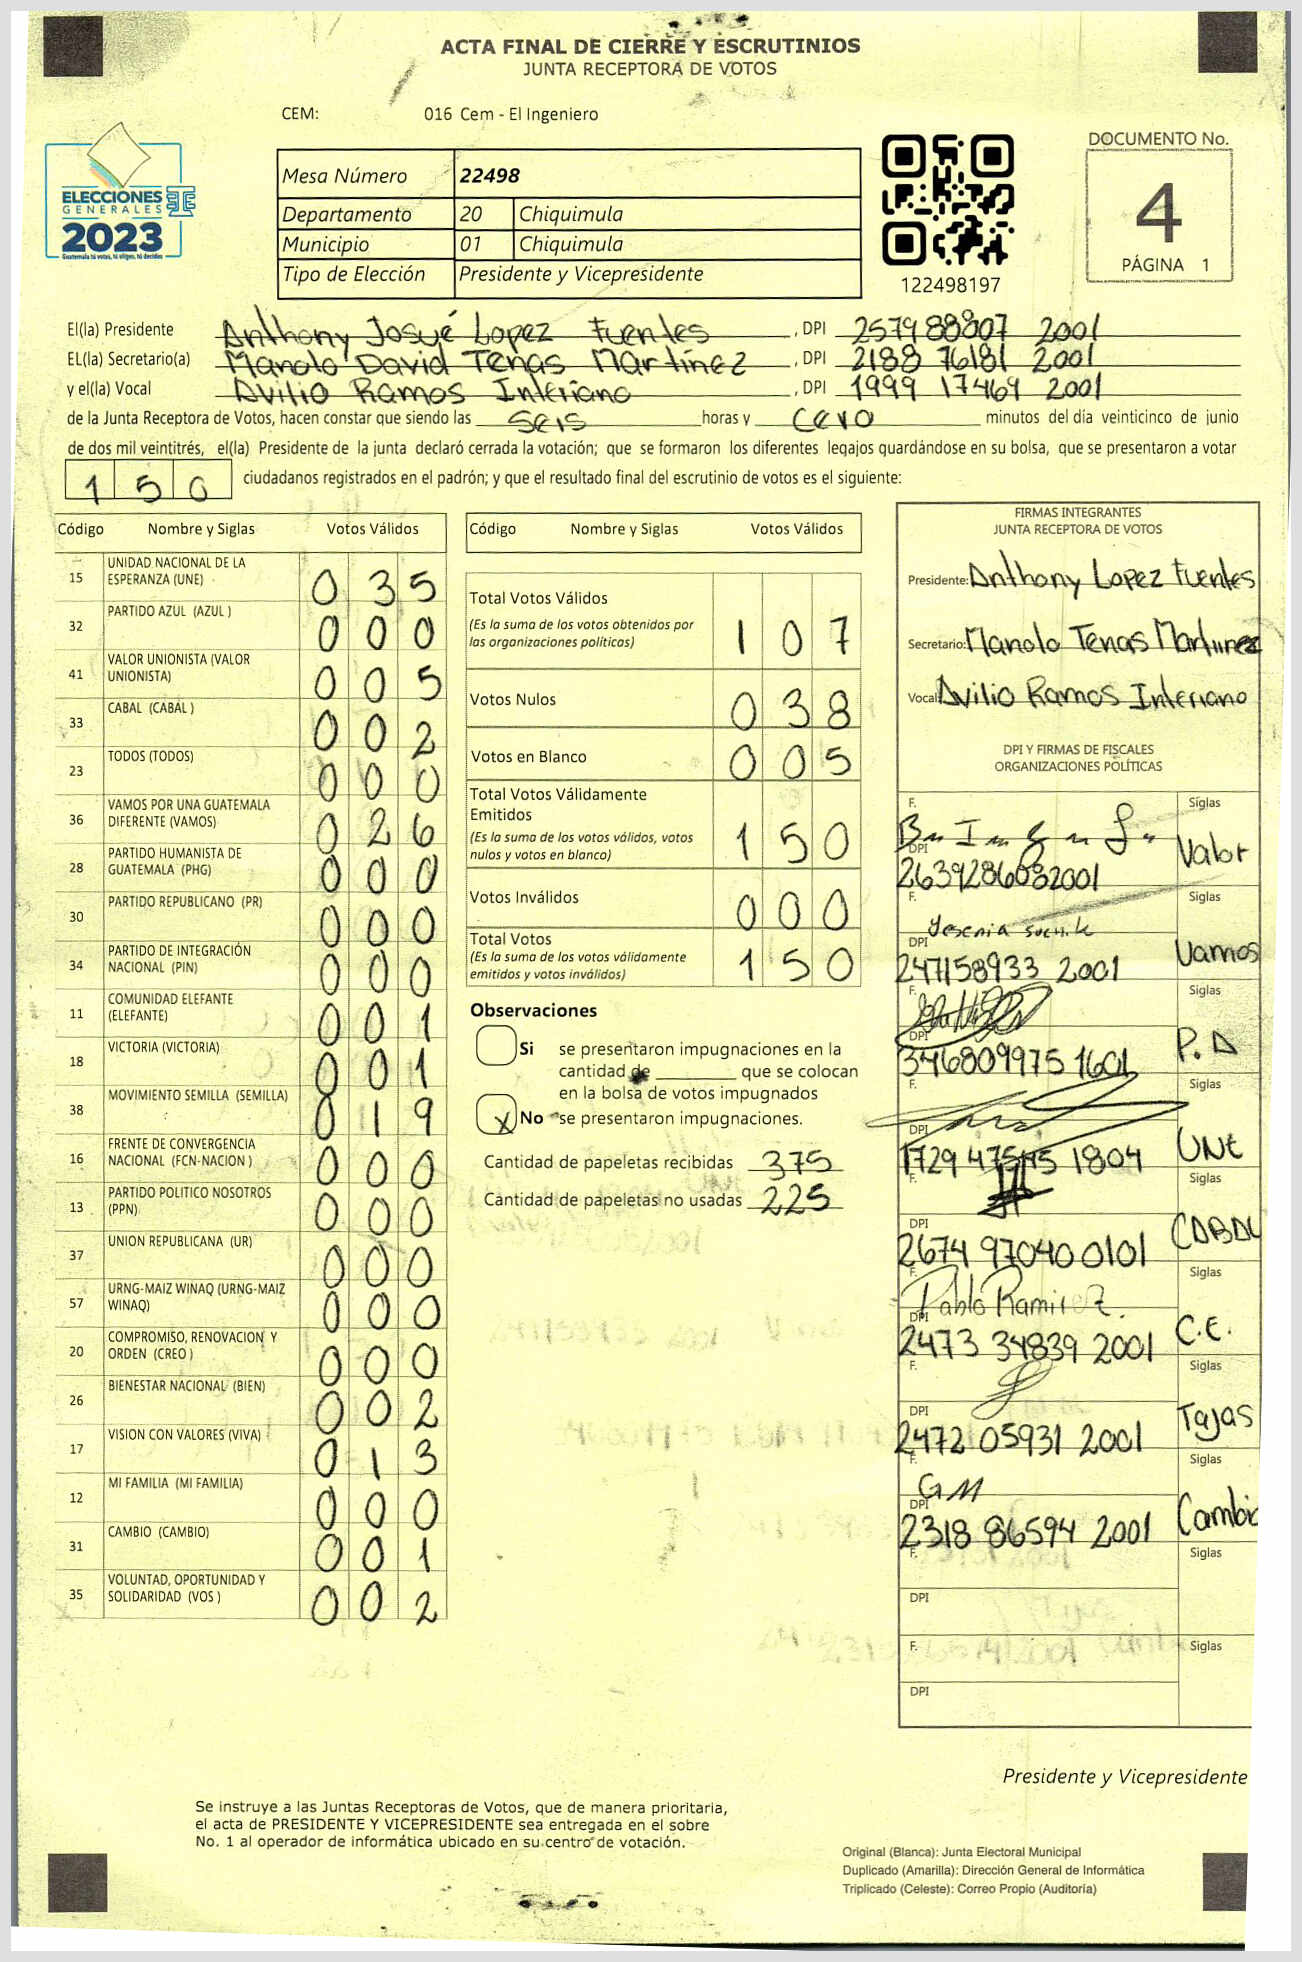 ACTA FINAL DE CIERRE Y ESCRUTINIOS
JUNTA RECEPTORA DE VOTOS
CEM: 016 Cem - El Ingeniero
ELECCIONES
GENERALES
2023
Guatemala tú votas, tú eliges, tú decides
Mesa Número 22498
Departamento 20 Chiquimula
Municipio 01 Chiquimula
Tipo de Elección Presidente y Vicepresidente
122498197
DOCUMENTO No.
4
PÁGINA 1
El(la) Presidente Anthony Josué Lopez Fuentes , DPI 2579 88807 2001
EL(la) Secretario(a) Manolo David Tenas Martínez , DPI 2188 76181 2001
y el(la) Vocal Avilio Ramos Interiano , DPI 1999 17469 2001
de la Junta Receptora de Votos, hacen constar que siendo las seis horas y cero minutos del día veinticinco de junio
de dos mil veintitrés, el(la) Presidente de la junta declaró cerrada la votación; que se formaron los diferentes legajos guardándose en su bolsa, que se presentaron a votar
150 ciudadanos registrados en el padrón; y que el resultado final del escrutinio de votos es el siguiente:
Código Nombre y Siglas Votos Válidos
15 UNIDAD NACIONAL DE LA ESPERANZA (UNE) 035
32 PARTIDO AZUL (AZUL ) 000
41 VALOR UNIONISTA (VALOR UNIONISTA) 005
33 CABAL (CABAL ) 002
23 TODOS (TODOS) 000
36 VAMOS POR UNA GUATEMALA DIFERENTE (VAMOS) 026
28 PARTIDO HUMANISTA DE GUATEMALA (PHG) 000
30 PARTIDO REPUBLICANO (PR) 000
34 PARTIDO DE INTEGRACIÓN NACIONAL (PIN) 000
11 COMUNIDAD ELEFANTE (ELEFANTE) 001
18 VICTORIA (VICTORIA) 001
38 MOVIMIENTO SEMILLA (SEMILLA) 019
16 FRENTE DE CONVERGENCIA NACIONAL (FCN-NACION ) 000
13 PARTIDO POLITICO NOSOTROS (PPN) 000
37 UNION REPUBLICANA (UR) 000
57 URNG-MAIZ WINAQ (URNG-MAIZ WINAQ) 000
20 COMPROMISO, RENOVACION Y ORDEN (CREO ) 000
26 BIENESTAR NACIONAL (BIEN) 002
17 VISION CON VALORES (VIVA) 013
12 MI FAMILIA (MI FAMILIA) 000
31 CAMBIO (CAMBIO) 001
35 VOLUNTAD, OPORTUNIDAD Y SOLIDARIDAD (VOS ) 002
Código Nombre y Siglas Votos Válidos
Total Votos Válidos 107
(Es la suma de los votos obtenidos por
las organizaciones políticas)
Votos Nulos 038
Votos en Blanco 005
Total Votos Válidamente
Emitidos 150
(Es la suma de los votos válidos, votos
nulos y votos en blanco)
Votos Inválidos 000
Total Votos 150
(Es la suma de los votos válidamente
emitidos y votos inválidos)
Observaciones
Si se presentaron impugnaciones en la
cantidad de ________ que se colocan
en la bolsa de votos impugnados
X No se presentaron impugnaciones.
Cantidad de papeletas recibidas 375
Cantidad de papeletas no usadas 225
FIRMAS INTEGRANTES
JUNTA RECEPTORA DE VOTOS
Presidente: Anthony Lopez Fuentes
Secretario: Manolo Tenas Martinez
Vocal: Avilio Ramos Interiano
DPI Y FIRMAS DE FISCALES
ORGANIZACIONES POLÍTICAS
F. Siglas
DPI 2639286032001 Valor
F. Yesenia Siglas
DPI 247158933 2001 Vamos
F. Siglas
DPI 346809975 1601 P.D
F. Siglas
DPI 1729 1804 UNE
F. Siglas
DPI 2674 97040 0101
F. Pablo Ramirez. Siglas
DPI 2473 34839 2001 C.E.
F. Siglas
DPI 2472 05931 2001 Tajas
F. GM Siglas
DPI 2318 86594 2001 Cambio
F. Siglas
DPI
F. Siglas
DPI
Presidente y Vicepresidente
Se instruye a las Juntas Receptoras de Votos, que de manera prioritaria,
el acta de PRESIDENTE Y VICEPRESIDENTE sea entregada en el sobre
No. 1 al operador de informática ubicado en su centro de votación.
Original (Blanca): Junta Electoral Municipal
Duplicado (Amarilla): Dirección General de Informática
Triplicado (Celeste): Correo Propio (Auditoría)